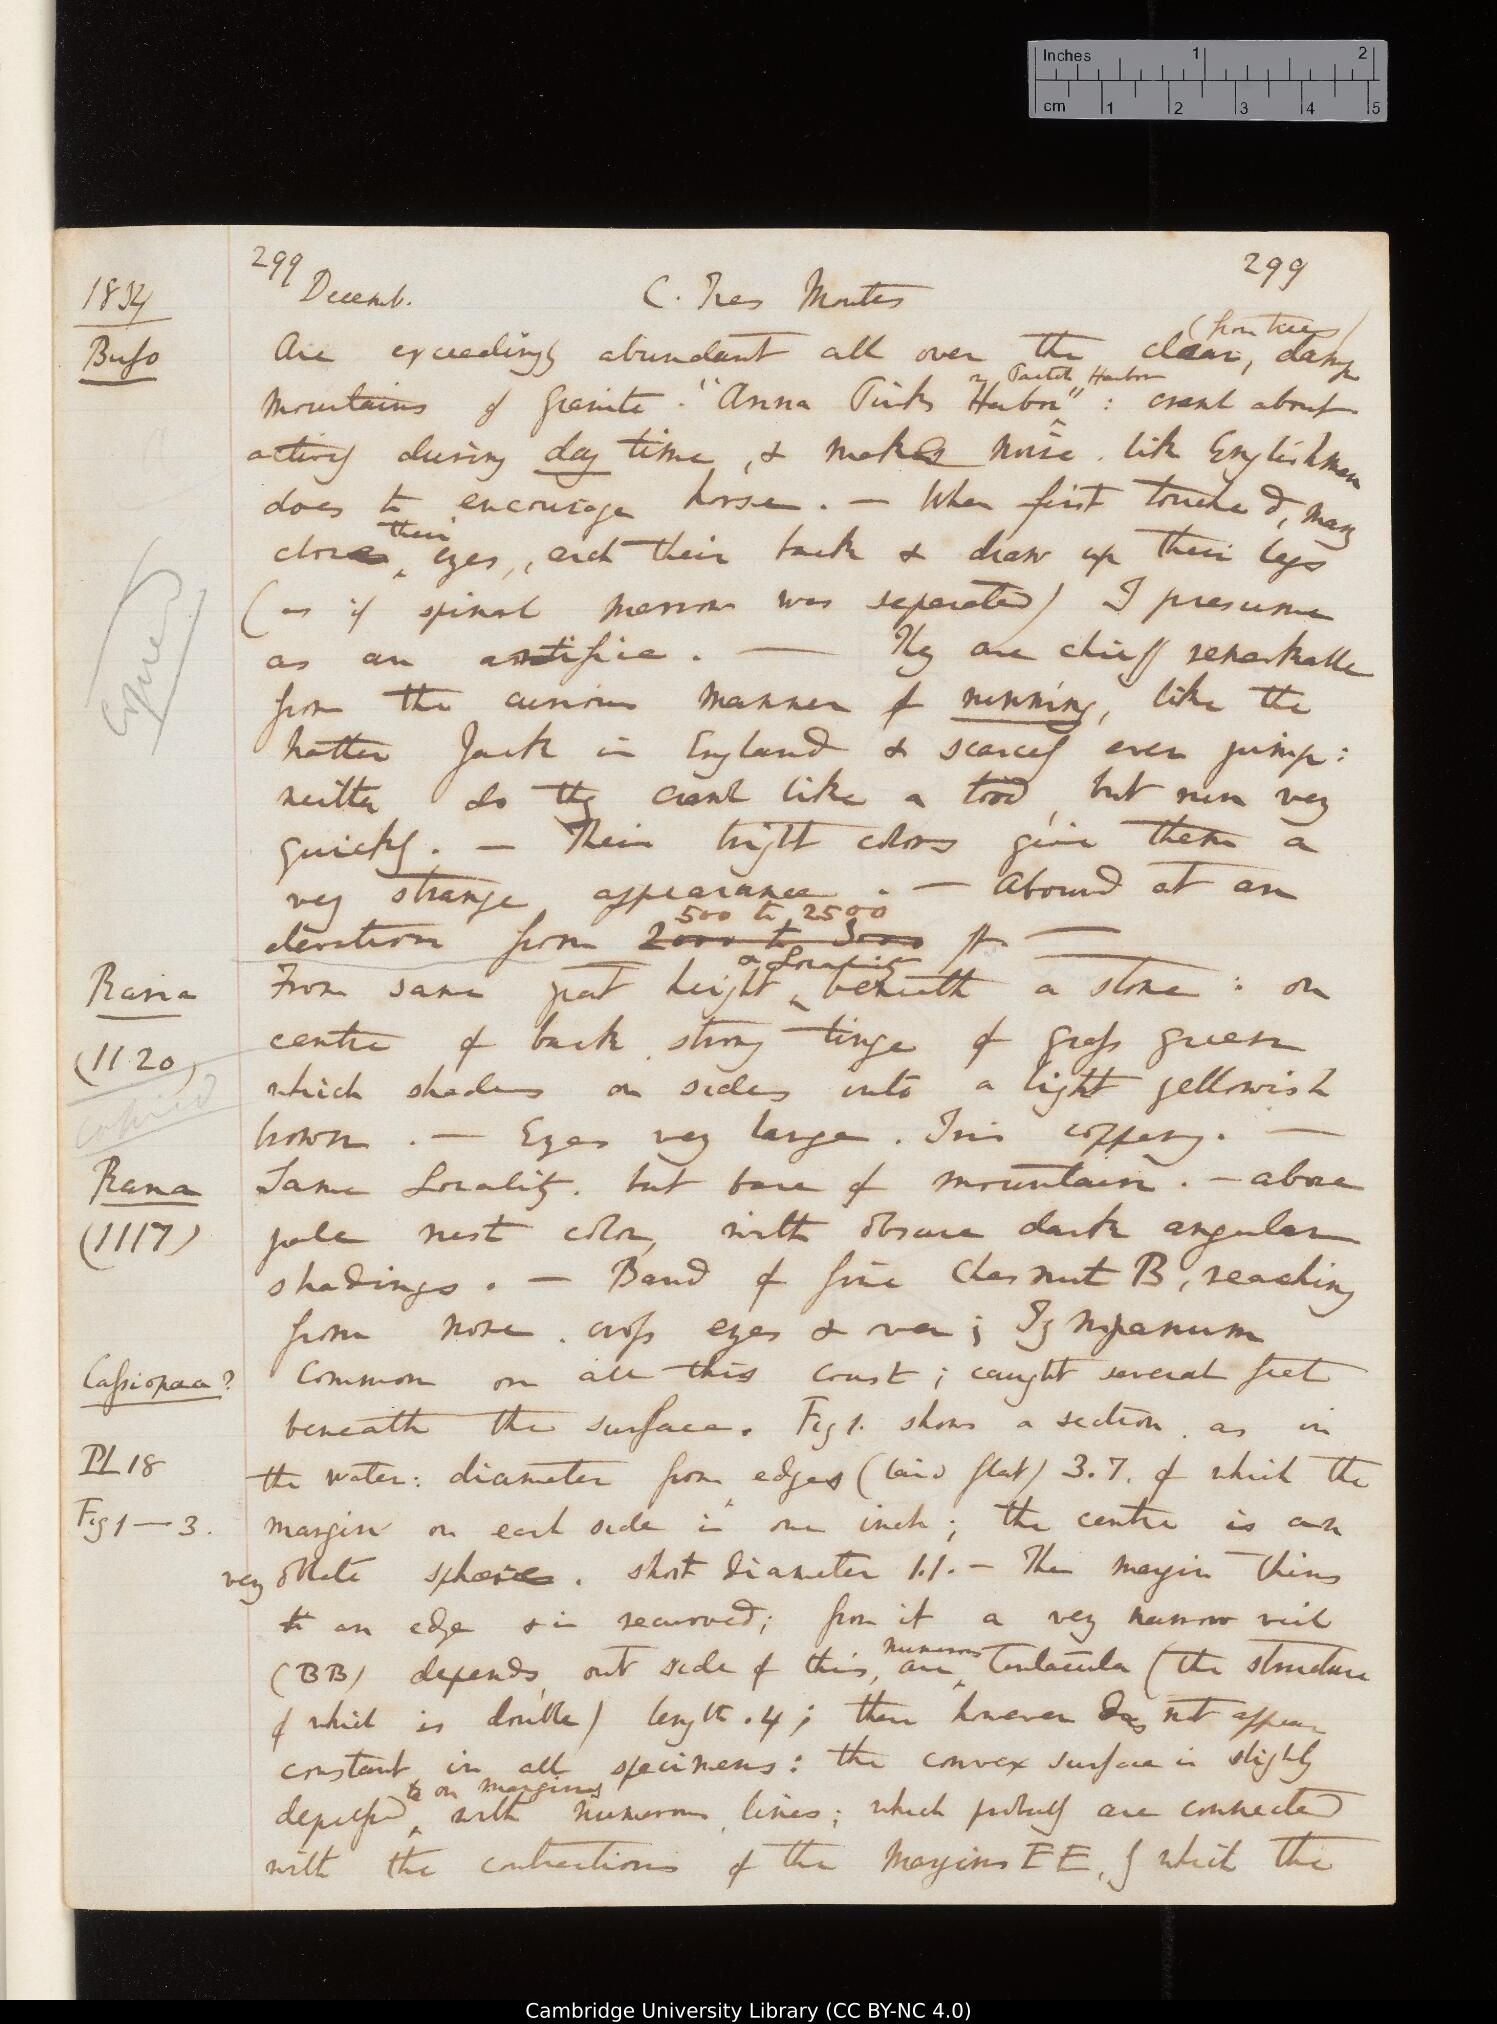 Inches 1 2
cm 1 2 3 4 5
299 299
1834 Decemb. C. Tres Montes
(from trees)
Bufo Are exceedingly abundant all over the clear, damp
or Patch Harbor
mountains of granite. "Anna Pinks Harbor": crawl about
actively during day time, & makes noise like Englishman
does to encourage horse. — When first touched, many
their
close eyes, arch their back & draw up their legs
(as if spinal marrow was separated) I presume
as an artifice. — They are chiefly remarkable
copied
from the curious manner of running, like the
natter Jack in England & scarcely ever jump:
neither do they crawl like a toad, but run very
quickly. — Their bright colors give them a
very strange appearance. — Abound at an
500 to 2500
elevation from 2000 to 3000 ft —
& Locality
Rana From same great height beneath a stone: on
(1120) centre of back strong tinge of grass green
copied which shades on sides into a light yellowish
brown. — Eyes very large. Iris coppery. —
Rana Same Locality. but base of mountain. — above
(1117) pale rust color, with obscure dark angular
shadings. — Band of fine Chesnut B, reaching
from nose across eyes & over; Tympanum
Cassiopaea? Common on all this coast; caught several feet
beneath the surface. Fig 1. shows a section as in
Pl 18 the water: diameter from edges (laid flat) 3.7. of which the
Fig 1—3. margin on each side is one inch; the centre is an
very oblate sphere. short diameter 1.1. — The margin thins
to an edge & is recurved; from it a very narrow veil
numerous
(BB) depends, out side of this, are tentacula (the structure
of which is double) length .4; these however do not appear
constant in all specimens: the convex surface is slightly
to on margins
depressed with numerous lines; which probably are connected
with the contractions of the margins EE, by which the
Cambridge University Library (CC BY-NC 4.0)